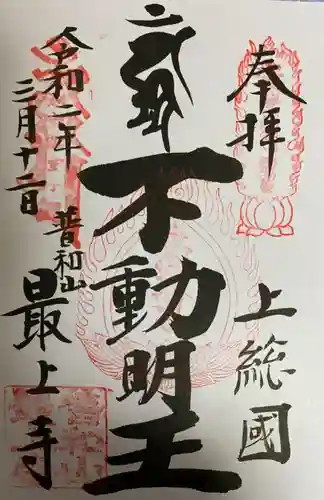 奉拝
上総國
不動明王
令和二年
三月十二日
普和山
最上寺